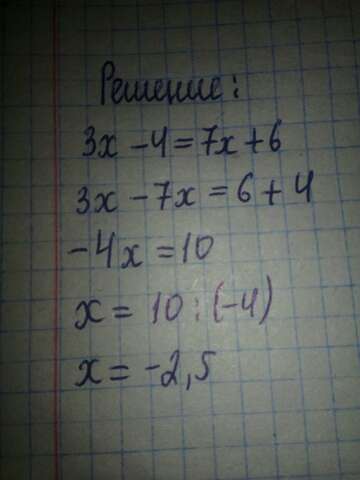 Решение:
3x - 4 = 7x + 6
3x - 7x = 6 + 4
-4x = 10
x = 10 : (-4)
x = -2,5